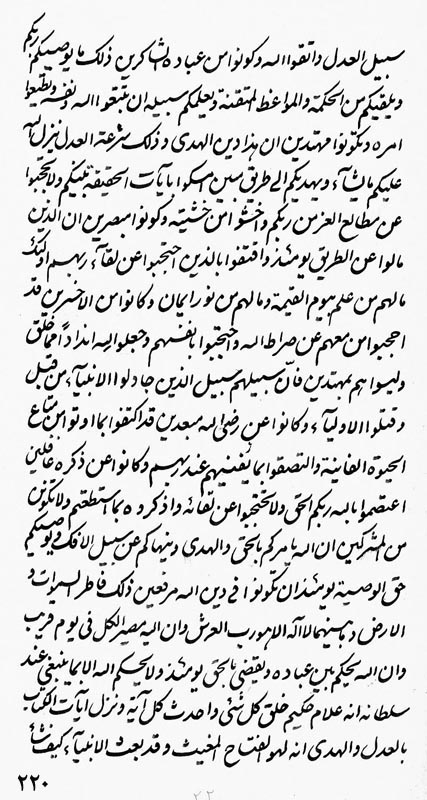 سبیل العدل واتقوا الله وکونوا من عباده الشاکرین ذلک ما یوصیکم ربکم
ویلقیکم من الحکمة والمواعظ المتقنة ویعلمکم سبیله ان تتقوا الله ونفسه وتطیعوا
امره وتکونوا مهتدین ان هذا دین الهدی وذلک شرعة العدل نزل الله
علیکم مایشآء ویهدیکم الی طریق مبین امسکوا بایات الحقیقة بینکم ولاتحتجبوا
عن مطالع العز من ربکم واخشوا من خشیته وکونوا مبصرین ان الذین
مالوا عن الطریق یومئذ واقتفوا بالذین احتجبوا عن لقآء ربهم اولئک
مالهم من علم یوم القیمة ومالهم من نور ایمان وکانوا من الاخسرین قد
احجبوا من معهم عن صراط الله واحتجبوا بانفسهم وجعلوا لله اندادا مما خلق
ولیسوا هم بمهتدین فان سبیلهم سبیل الذین جادلوا الانبیآء من قبل
وقتلوا الاولیآء وکانوا عن رضی الله مبعدین قد اکتفوا بما اوتوا من متاع
الحیوة الفانیة والتصقوا بما یفنیهم عند ربهم وکانوا عن ذکره غافلین
اعتصموا بالله ربکم الحق ولاتحتجبوا عن لقائه واذکروه بما استطعتم ولاتکونن
من المشرکین ان الله یامرکم بالحق والهدی وینهاکم عن سبیل الافک ویوصیکم
حق الوصیة یومئذ ان تکونوا فی دین الله مرفعین ذلک فاطر السموات و
الارض وما بینهما لااله الا هو رب العرش وان الیه مصیر الکل فی یوم قریب
وان الله یحکم بین عباده ویقضی بالحق یومئذ ولایحکم الله الا بما ینبغی عند
سلطانه انه علام حکیم خلق کل شئی واحدث کل آیة ونزل ایات الکتاب
بالعدل والهدی انه لهو الفتاح المغیث وقد بعث الانبیآء کیف شآء
۲۲۰